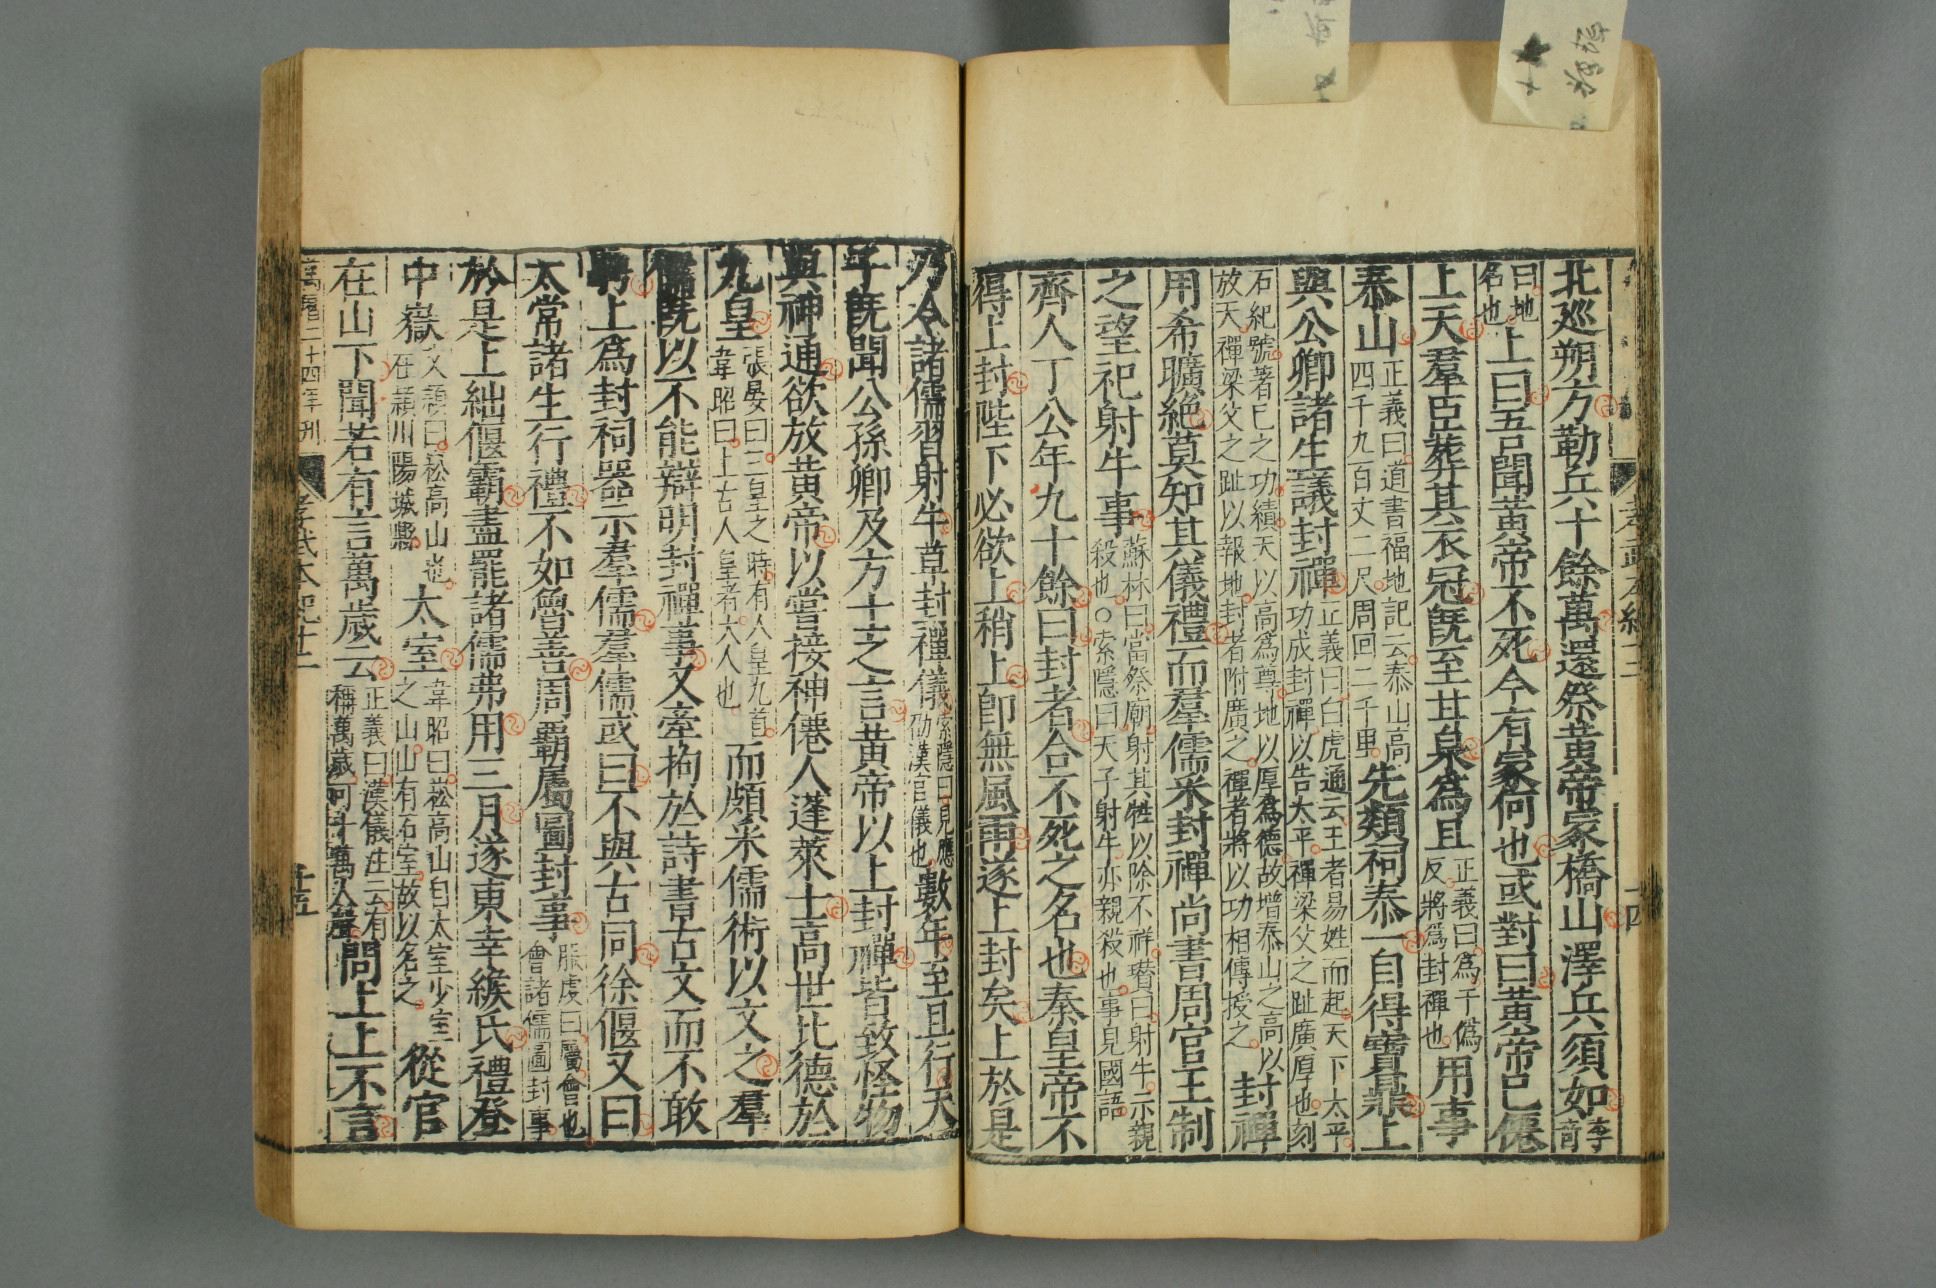 北巡朔方勒兵十餘萬還祭黃帝冢橋山澤兵須如李奇
曰地名也上曰吾聞黃帝不死今有冢何也或對曰黃帝已僊
上天羣臣葬其衣冠既至甘泉爲且正義曰爲于僞反將爲封禪也用事
泰山正義曰道書福地記云泰山高四千九百丈二尺周回二千里先類祠泰一自得寶鼎上
與公卿諸生議封禪正義曰白虎通云王者易姓而起天下太平功成封禪以告太平禪梁父之趾廣厚也刻
石紀號著己之功績天以高爲尊地以厚爲德故增泰山之高以放天禪梁父之趾以報地封者附廣之禪者將以功相傳授之封禪
用希曠絕莫知其儀禮而羣儒采封禪尚書周官王制
之望祀射牛事蘇林曰當祭廟射其牲以除不祥瓚曰射牛示親殺也○索隱曰天子射牛亦親殺也事見國語
齊人丁公年九十餘曰封者合不死之名也秦皇帝不
得上封陛下必欲上稍上卽無風雨遂上封矣上於是
孝武本紀十二
十四
乃令諸儒習射牛草封禪儀索隱曰見應劭漢官儀也數年至且行天
子既聞公孫卿及方士之言黃帝以上封禪皆致怪物
與神通欲放黃帝以嘗接神僊人蓬萊士高世比德於
九皇張晏曰三皇之時有人皇九首韋昭曰上古人皇者六人也而頗采儒術以文之羣
儒既以不能辯明封禪事又牽拘於詩書古文而不敢
騁上爲封祠器示羣儒羣儒或曰不與古同徐偃又曰
太常諸生行禮不如魯善周霸屬圖封事服虔曰屬會也會諸儒圖封事
於是上絀偃霸盡罷諸儒弗用三月遂東幸緱氏禮登
中嶽文穎曰崧高山也在潁川陽城縣太室韋昭曰崧高山有太室少室之山山有石室故以名之從官
在山下聞若有言萬歲云正義曰漢儀注云有稱萬歲可十萬人聲問上上不言
萬曆二十四年刊
孝武本紀十二
十五